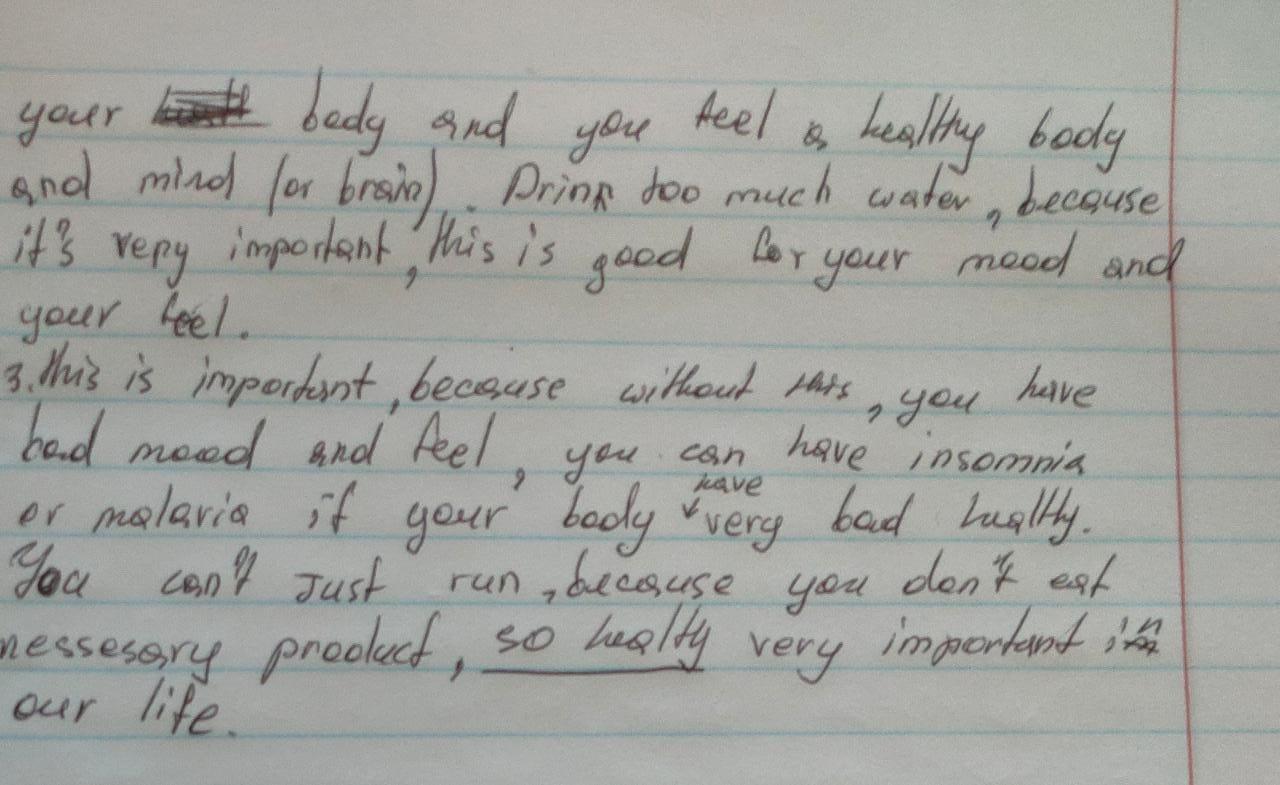 your body and you feel a healthy body
and mind (or brain). Drink too much water, because
it's very important, this is good for your mood and
your feel.
3. this is important, because without this, you have
bad mood and feel, you can have insomnia
or malaria if your body have very bad healthy.
You can't Just run, because you don't eat
nessesary product, so healty very important in
our life.